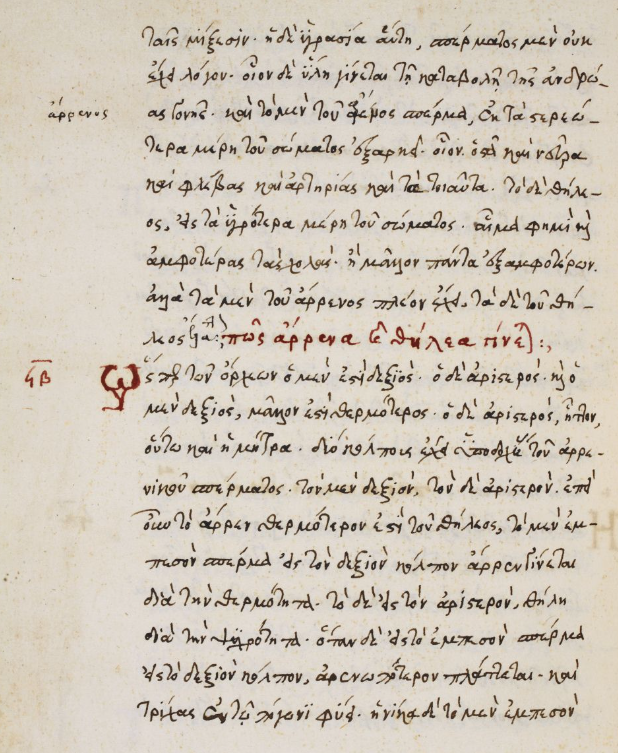 ταῖς μίξεσιν· ἡ δὲ ὑγρασία αὕτη, σπέρματος μὲν οὐκ
ἔχει λόγον· οἷον δὲ ὕλη γίνεται τῇ καταβολῇ τῆς ἀνδρώ-
ας γονῆς· καὶ τὸ μὲν τοῦ σπέρμα, εἰς τὰ στερεώ-
ἄρρενος
τερα μέρη τοῦ σώματος ἐξαρκεῖ· οἷον ὀστᾶ καὶ νεῦρα
καὶ φλέβας καὶ ἀρτηρίας καὶ τὰ τοιαῦτα· τὸ δὲ θήλε-
ος, εἰς τὰ ὑγρότερα μέρη τοῦ σώματος· αἷμά φημι καὶ
ἀμφοτέρας τὰς χολάς· ἢ μᾶλλον πάντα ἐξ ἀμφοτέρων.
ἀλλὰ τὰ μὲν τοῦ ἄρρενος πλέον ἔχει, τὰ δὲ τοῦ θή-
λεος πῶς ἄρρενα καὶ θήλεα γίνεται:
ϟβ
Ὥσπερ τῶν ὄρχεων ὁ μέν ἐστι δεξιός· ὁ δὲ ἀριστερός· καὶ ὁ
μὲν δεξιός, μᾶλλον ἐστὶ θερμότερος· ὁ δὲ ἀριστερός, ἧττον,
οὕτω καὶ ἡ μήτρα· δύο κόλπους ἔχει ὑποδοχὰς τοῦ ἀρρε-
νικοῦ σπέρματος· τὸν μὲν δεξιόν, τὸν δὲ ἀριστερόν. ἐπεὶ
οὖν τὸ ἄρρεν θερμότερον ἐστὶ τοῦ θήλεος, τὸ μὲν ἐμ-
πεσὸν σπέρμα εἰς τὸν δεξιὸν κόλπον ἄρρεν γίνεται
διὰ τὴν θερμότητα· τὸ δὲ εἰς τὸν ἀριστερόν, θῆλυ
διὰ τὴν ψυχρότητα· ὅταν δὲ εἰς τὸ ἐμπεσὸν σπέρμα
εἰς τὸ δεξιὸν κόλπον, ἀρενωπότερον πλάττεται· καὶ
τρίχας ἐν τῷ πώγωνι φύει· ἡνίκα δὲ τὸ μὲν ἐμπεσὸν